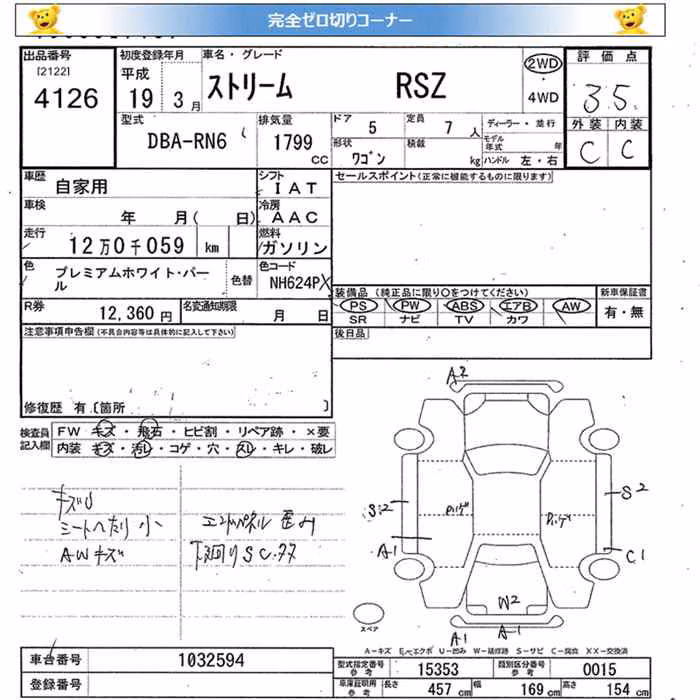 完全ゼロ切りコーナー
出品番号
[2122]
4126
初度登録年月
平成
19 3月
車名・グレード
ストリーム RSZ
2WD
4WD
評価点
3.5
外装 内装
C C
型式
DBA-RN6
排気量
1799
CC
ドア
5
定員
7 人
形状
ワゴン
積載
kg
ディーラー・並行
モデル
年式 年
ハンドル 左・右
車歴
自家用
シフト
IAT
車検
年 月( 日)
冷房
AAC
走行
12万0千059 km
燃料
ガソリン
色
プレミアムホワイト・パー
ル
色替
色コード
NH624P
R券
12,360 円
名変通知期限
月 日
セールスポイント(正常に機能するものに限ります)
装備品 (純正品に限り○をつけてください)
PS PW ABS エアB AW
SR ナビ TV カワ
新車保証書
有・無
後日品
注意事項申告欄(不具合内容等は具体的に記入して下さい)
修復歴 有〔箇所 〕
検査員
記入欄
FW キズ・飛石・ヒビ割・リペア跡・×要
内装 キズ・汚レ・コゲ・穴・スレ・キレ・破レ
キズU
シートヘたり 小
AWキズ
エンドパネル 歪み
下回りS C.ササ
A2
S2
S2
A1
C1
W2
A1
A1
スペア
A-キズ E-エクボ U-凹み W-補修跡 S-サビ C-腐食 XX-交換済
車台番号
1032594
登録番号
型式指定番号
参考
15353
類別区分番号
参考
0015
車庫証明用
参考
長さ
457 cm
幅
169 cm
高さ
154 cm